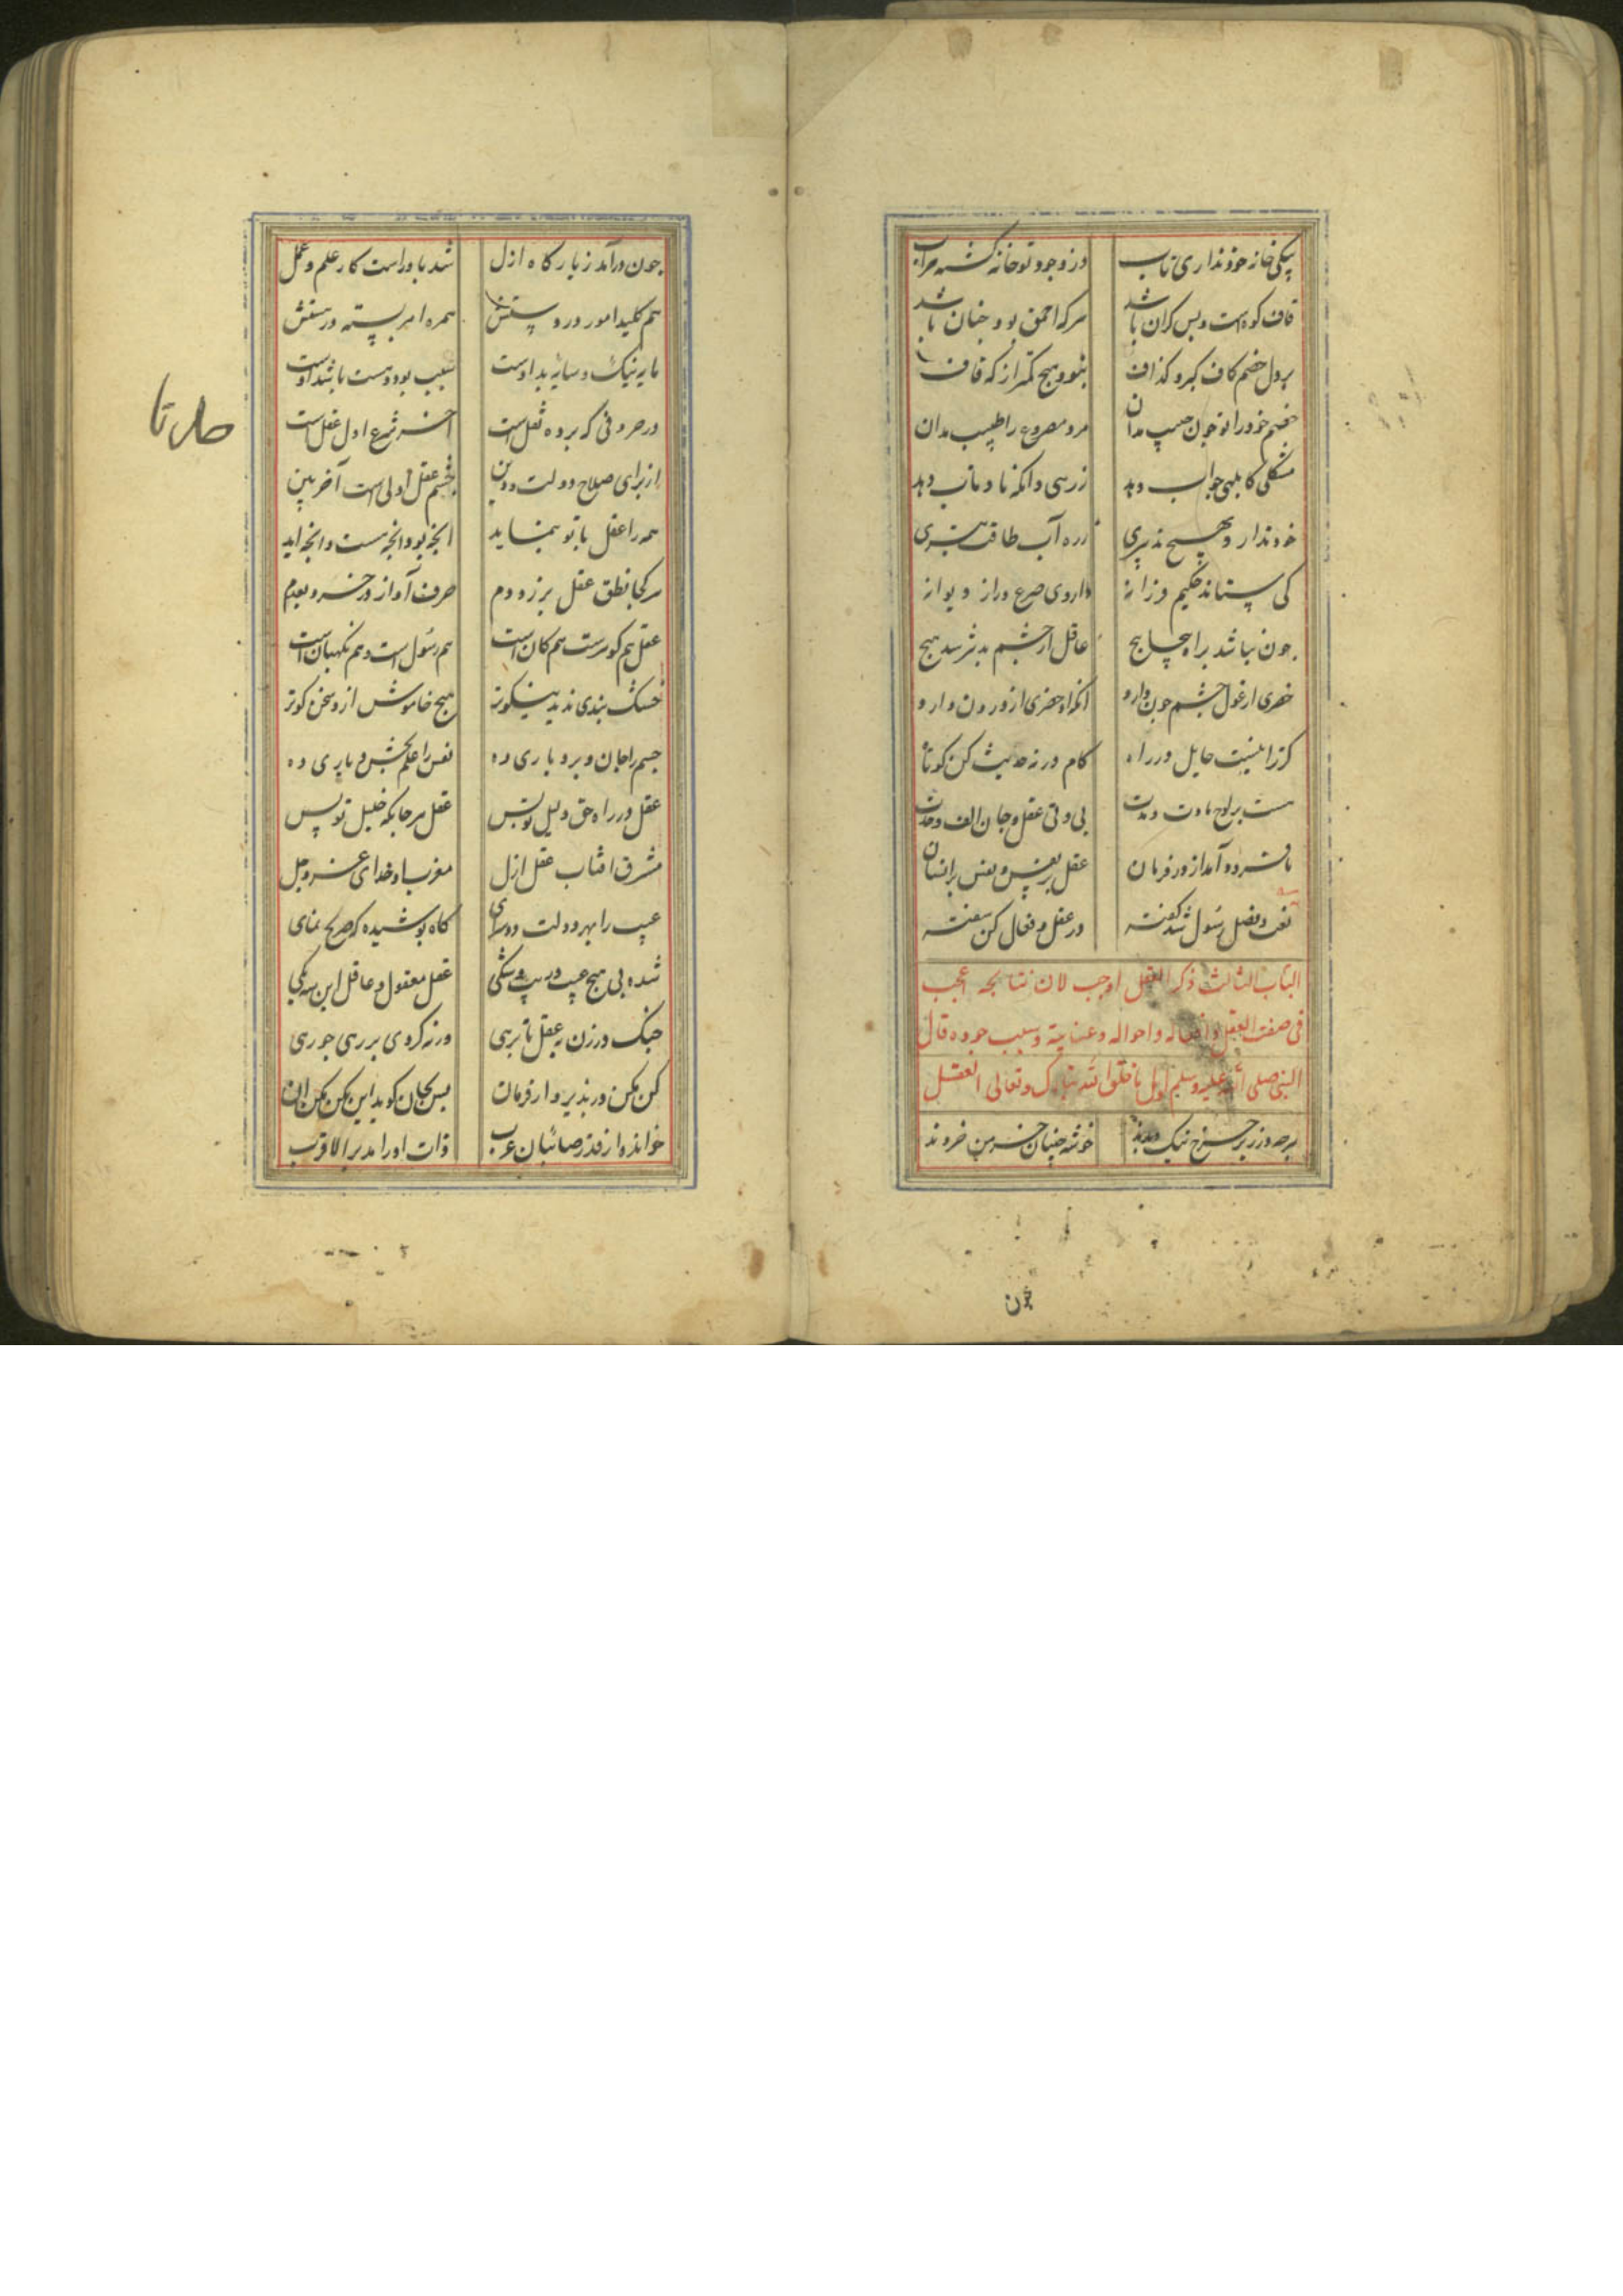 پیکی خانه خود نداری تاب در وجود تو خانه گشته خراب
قاف کوهست و بس کران باشد هرکه احمق بود چنان باشد
بر دل خصم کاف کبر و گذاف بنود هیچ کمتر از که قاف
خصم خود را تو چون حبیب مدان مرد مصروع را طبیب مدان
مشکلی کابلهی جواب دهد زر هی دانکه ناودتاب دهد
خود ندارد هیچ تدبیری زره آب طاقت تیری
کی ستاند حکیم فرزانه داروی صرع از دیوانه
چون نباشد براه چاپیچ عاقل از چشم بد نترسد هیچ
خضری از غول چشم چون دارد انکه او خضری از درون دارد
کر ترا نیست حایل در راه کام در نه حدیث کن کوتاه
هست بر لوح مادت و مدت بی و تی عقل و جان الف وحدت
تا فرود آمد از در فرمان عقل بر نفس و نفس بر انسان
نعت و فضل رسول شد گفته در عقل و فعال کن سفته
الباب الثالث ذکر العقل اوجب لان نتایجه اعجب
فی صفت العقل و افعاله و احواله و عنایته و سبب جوده قال
النبی صلی الله علیه وسلم اول ما خلق الله تبارک وتعالی العقل
هرچه در زیر چرخ نیک و بدند خوشه چینان خرمن خردند
چون
چون درآمد ز بارکاه ازل شد باو راست کار علم و عمل
هم کلید امور در دستش همره امر بسته در هستش
مایه نیک و سایه بد اوست سبب بود و هست و باشد اوست
در حروفی که پرده نقل است آخر شرع اول عقل است
از برای صلاح دولت و دین چشم عقل اولی است آخربین
همه را عقل با تو بنماید انچه بود و انچه هست و انچه اید
هر کجا نطق عقل برزد دم حرف آواز در خزد بعدم
عقل هم گوهرست هم کان است هم رسول است و هم نگهبان است
خشک بندی ندید نیکوتر هیچ خاموش ازو سخن گوتر
جسم را جان و برد باری ده نفس را علم بخش و یاری ده
عقل در راه حق دلیل تو بس عقل هر جایگه خلیل تو بس
مشرق افتاب عقل ازل مغرب او خدای عز و جل
عیب را بهر دولت دوسرای کاه پوشیده که صریح نمای
شده بی هیچ عیب و ریب و شکی عقل معقول و عاقل این سه یکی
چنگ در زن بعقل تا برهی ورنه کردی بهر رهی چو رهی
کن مکن در پذیرد از فرمان پس بجان گوید این بکن مکن آن
خوانده از قدر صائبان عرب ذات او را مدبر الاقرب